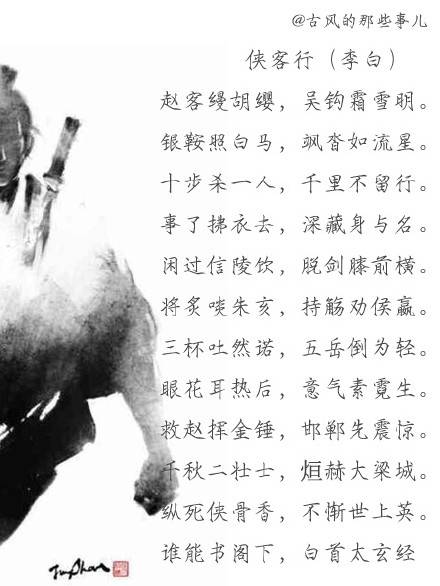 @古风的那些事儿
侠客行（李白）
赵客缦胡缨，吴钩霜雪明。
银鞍照白马，飒沓如流星。
十步杀一人，千里不留行。
事了拂衣去，深藏身与名。
闲过信陵饮，脱剑膝前横。
将炙啖朱亥，持觞劝侯嬴。
三杯吐然诺，五岳倒为轻。
眼花耳热后，意气素霓生。
救赵挥金锤，邯郸先震惊。
千秋二壮士，烜赫大梁城。
纵死侠骨香，不惭世上英。
谁能书阁下，白首太玄经